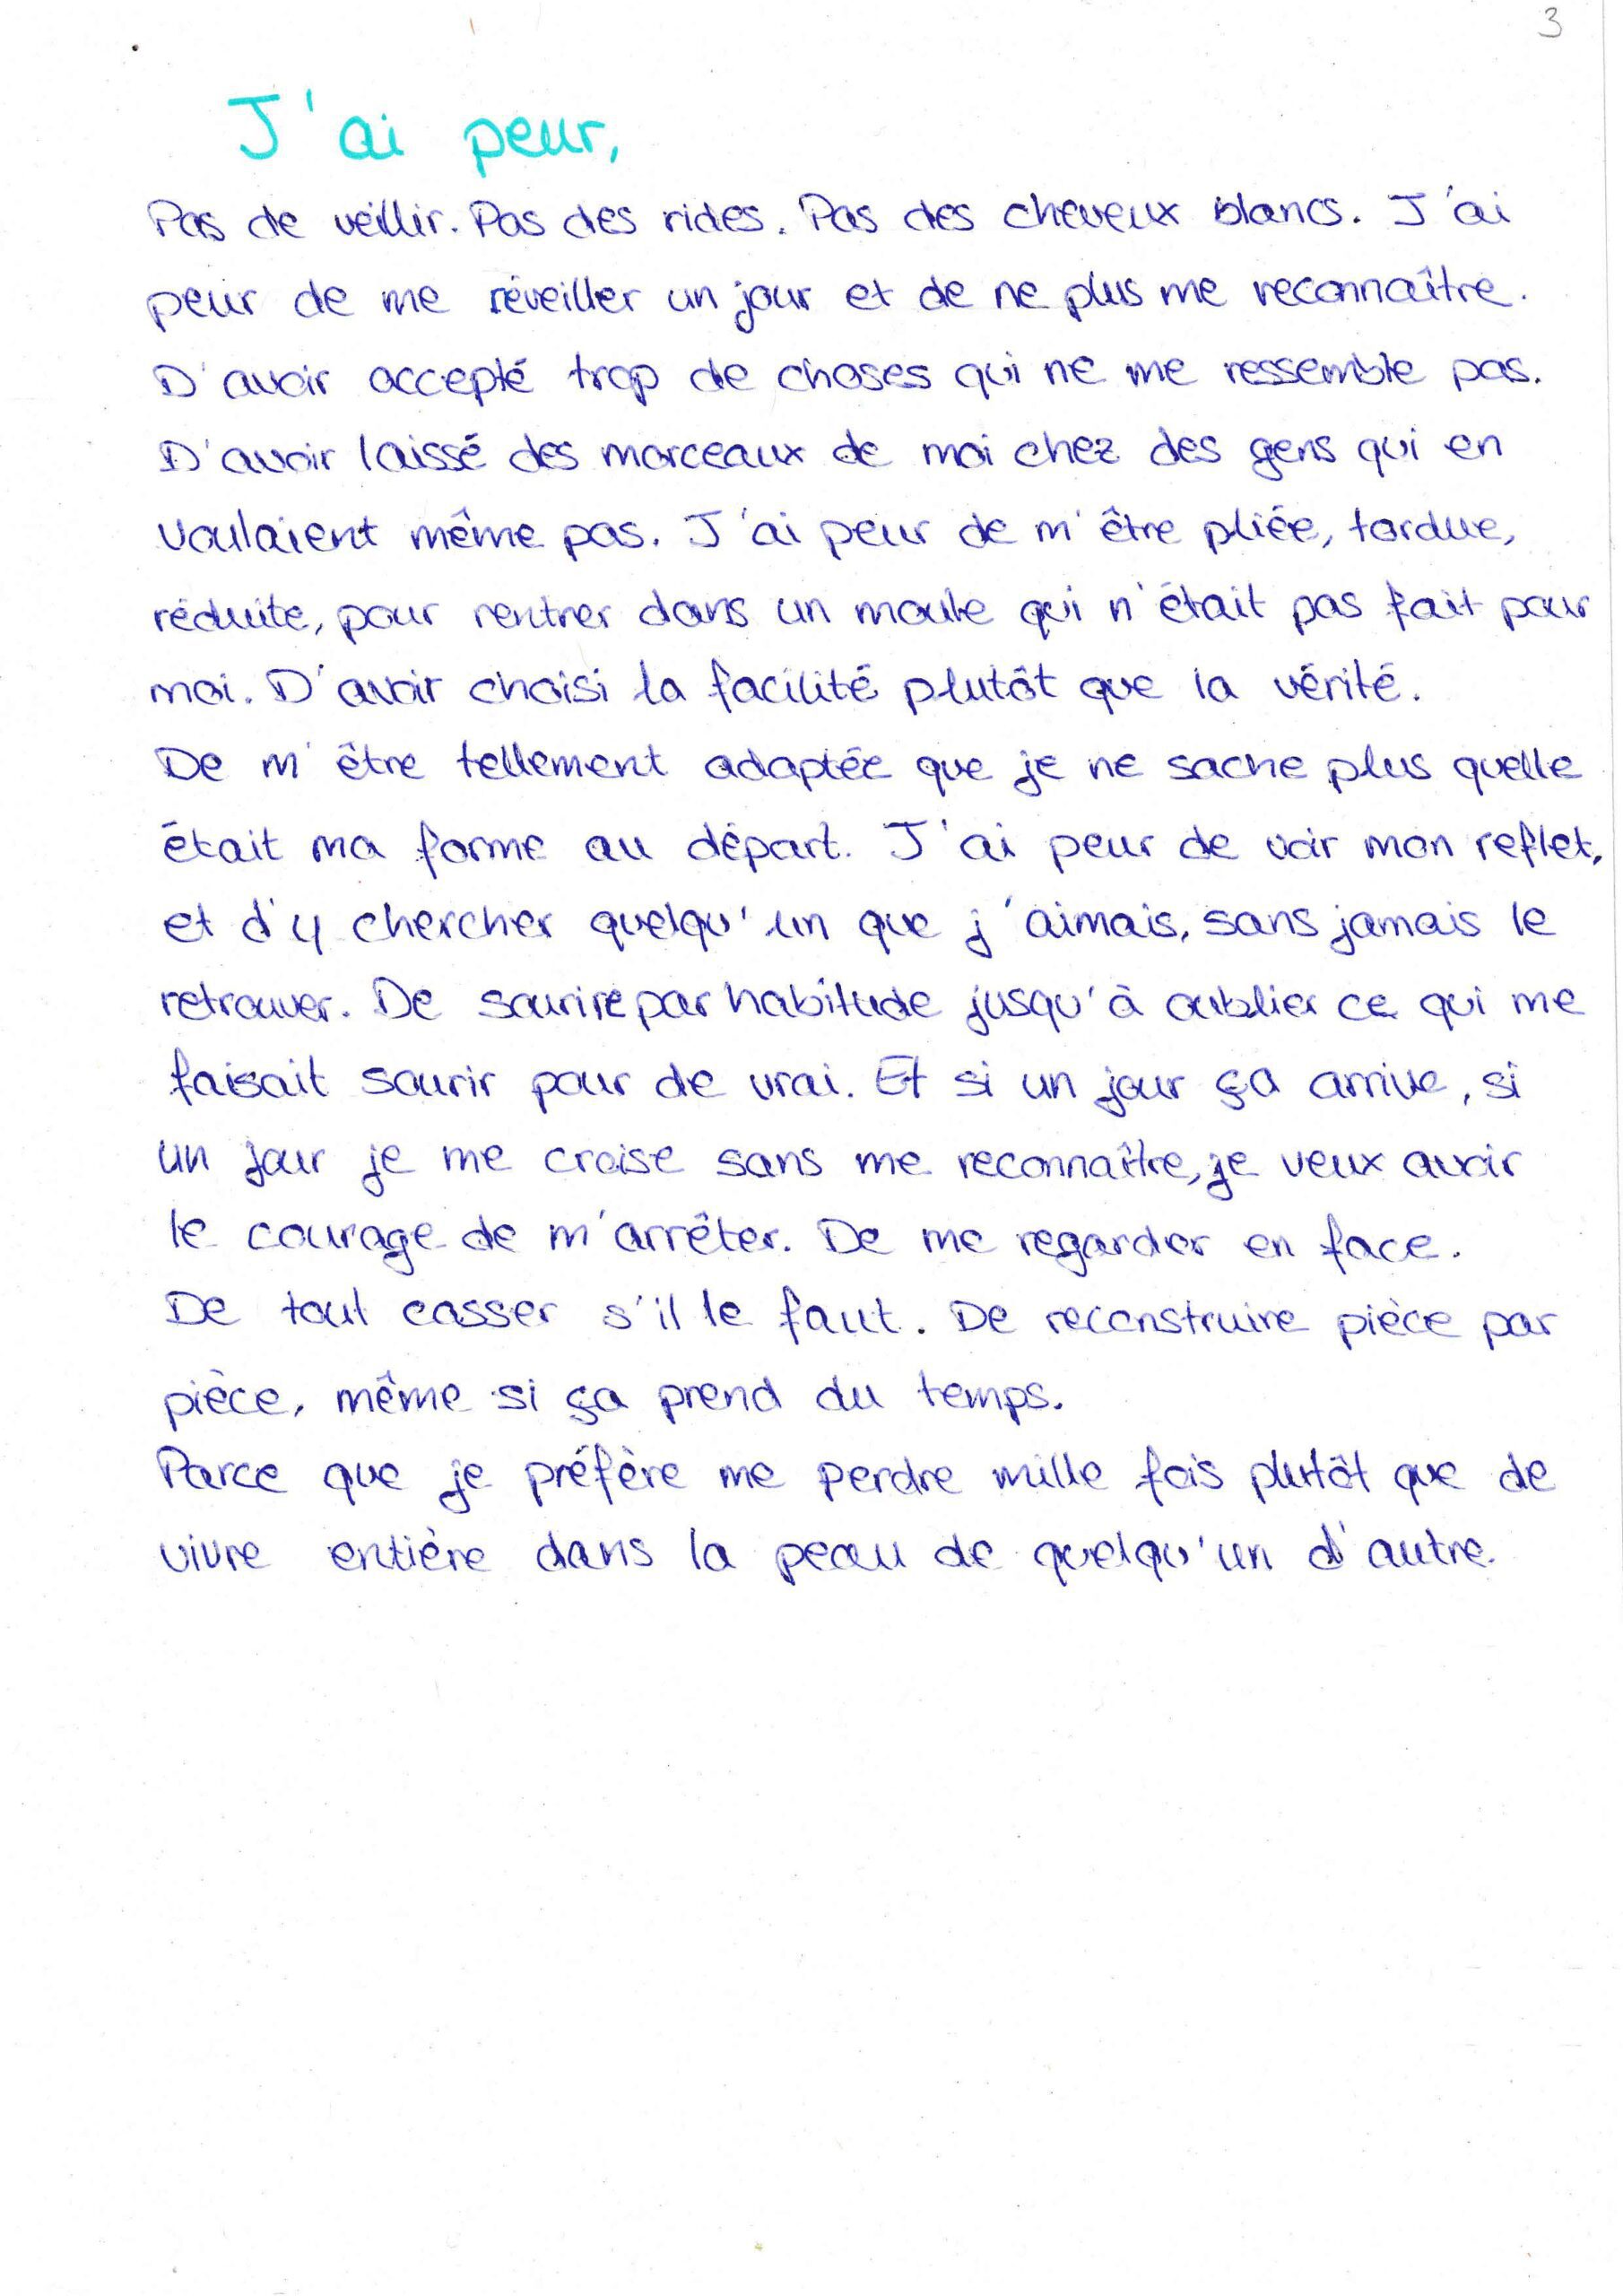 3
J'ai peur,
Pas de veillir. Pas des rides. Pas des cheveux blancs. J'ai
peur de me réveiller un jour et de ne plus me reconnaître.
D'avoir accepté trop de choses qui ne me ressemble pas.
D'avoir laissé des morceaux de moi chez des gens qui en
voulaient même pas. J'ai peur de m'être pliée, tordue,
réduite, pour rentrer dans un moule qui n'était pas fait pour
moi. D'avoir choisi la facilité plutôt que la vérité.
De m'être tellement adaptée que je ne sache plus quelle
était ma forme au départ. J'ai peur de voir mon reflet,
et d'y chercher quelqu'un que j'aimais, sans jamais le
retrouver. De sourire par habitude jusqu'à oublier ce qui me
faisait sourir pour de vrai. Et si un jour ça arrive, si
un jour je me croise sans me reconnaître, je veux avoir
le courage de m'arrêter. De me regarder en face.
De tout casser s'il le faut. De reconstruire pièce par
pièce, même si ça prend du temps.
Parce que je préfère me perdre mille fois plutôt que de
vivre entière dans la peau de quelqu'un d'autre.